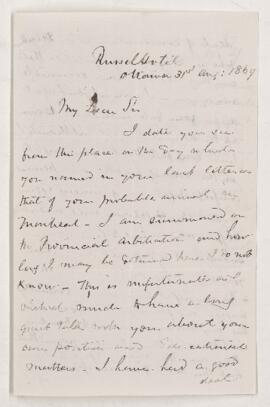 Russel Hotel
Ottawa 31st Aug: 1869
My Dear Sir
I date you see
from this place on the day which
you named in your last letter as
that of your probable arrival
Montreal - I am summoned on
the Provincial Arbitration and how
long I may be detained here I do not
know - This is unfortunate as I
wished much to have a long
quiet talk with you about your
own position and
matters - I have had a good
deal